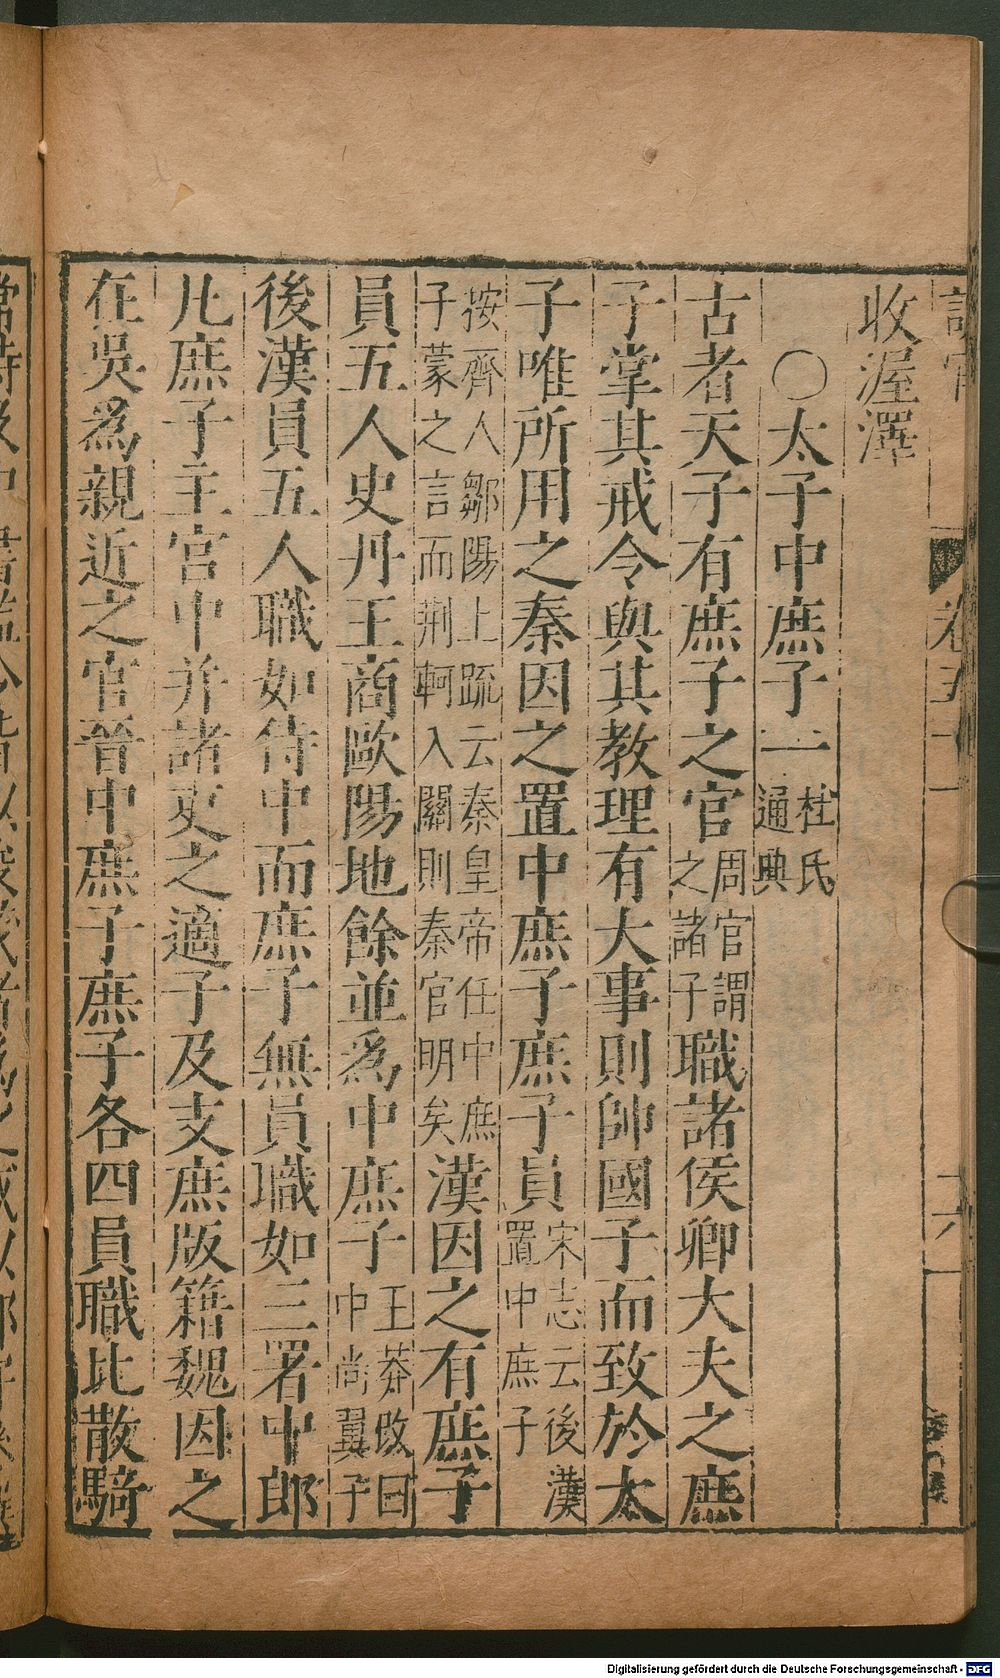 收渥澤
〇太子中庶子一杜氏通典
古者天子有庶子之官周官謂之諸子職諸侯卿大夫之庶
子掌其戒令與其教理有大事則帥國子而致於太
子唯所用之秦因之置中庶子庶子員宋志云後漢置中庶子
按齊人鄒陽上疏云秦皇帝任中庶子蒙之言而荆軻入關則秦官明矣漢因之有庶子
員五人史丹王商歐陽地餘並爲中庶子王莽改曰中尚翼子
後漢員五人職如侍中而庶子無員職如三署中郎
凡庶子主宮中并諸吏之適子及支庶版籍魏因之
在吳爲親近之官晉中庶子庶子各四員職比散騎
Digitalisierung gefördert durch die Deutsche Forschungsgemeinschaft - DFG